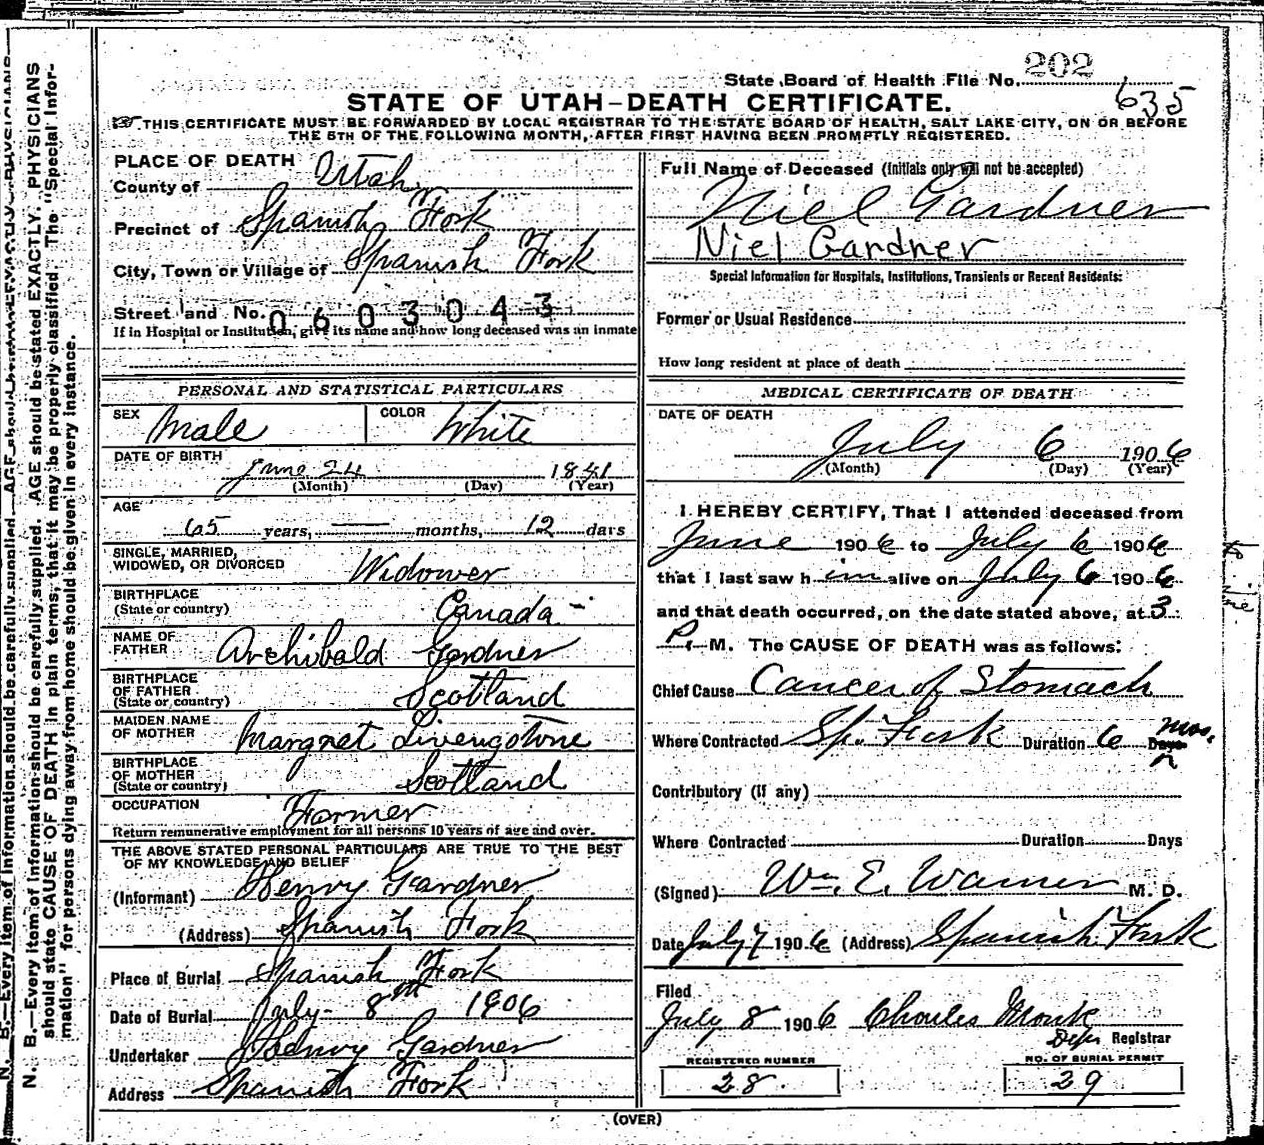 State Board of Health File No. 202
635
STATE OF UTAH-DEATH CERTIFICATE.
THIS CERTIFICATE MUST BE FORWARDED BY LOCAL REGISTRAR TO THE STATE BOARD OF HEALTH, SALT LAKE CITY, ON OR BEFORE
THE 5TH OF THE FOLLOWING MONTH, AFTER FIRST HAVING BEEN PROMPTLY REGISTERED.
PLACE OF DEATH
County of Utah
Precinct of Spanish Fork
City, Town or Village of Spanish Fork
Street and No. 0603043
If in Hospital or Institution, give its name and how long deceased was an inmate
PERSONAL AND STATISTICAL PARTICULARS
SEX Male COLOR White
DATE OF BIRTH
June 24 1841
(Month) (Day) (Year)
AGE
65 years, — months, 12 days
SINGLE, MARRIED,
WIDOWED, OR DIVORCED Widower
BIRTHPLACE
(State or country) Canada
NAME OF
FATHER Archibald Gardner
BIRTHPLACE
OF FATHER
(State or country) Scotland
MAIDEN NAME
OF MOTHER Margret Livengstone
BIRTHPLACE
OF MOTHER
(State or country) Scotland
OCCUPATION Farmer
Return remunerative employment for all persons 10 years of age and over.
THE ABOVE STATED PERSONAL PARTICULARS ARE TRUE TO THE BEST
OF MY KNOWLEDGE AND BELIEF
(Informant) Henry Gardner
(Address) Spanish Fork
Place of Burial Spanish Fork
Date of Burial July 8th 1906
Undertaker Henry Gardner
Address Spanish Fork
Full Name of Deceased (Initials only will not be accepted)
Niel Gardner
Niel Gardner
Special Information for Hospitals, Institutions, Transients or Recent Residents:
Former or Usual Residence
How long resident at place of death
MEDICAL CERTIFICATE OF DEATH
DATE OF DEATH
July 6 1906
(Month) (Day) (Year)
I HEREBY CERTIFY, That I attended deceased from
June 1906 to July 6 1906
that I last saw him alive on July 6 1906
and that death occurred, on the date stated above, at 3
P. M. The CAUSE OF DEATH was as follows:
Chief Cause Cancer of Stomach
Where Contracted Sp. Fork Duration 6 mos. Days
Contributory (if any)
Where Contracted Duration Days
(Signed) Wm. E. Warner M. D.
Date July 7 1906 (Address) Spanish Fork
Filed
July 8 1906 Charles Monk
Dep Registrar
REGISTERED NUMBER
28.
NO. OF BURIAL PERMIT
29
(OVER)
N. B.—Every item of information should be carefully supplied. AGE should be stated EXACTLY. PHYSICIANS
should state CAUSE OF DEATH in plain terms, that it may be properly classified. The "Special Infor-
mation" for persons dying away from home should be given in every instance.